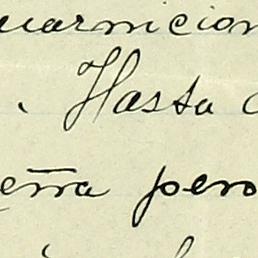 uarnicion
. Hasta
eña pero